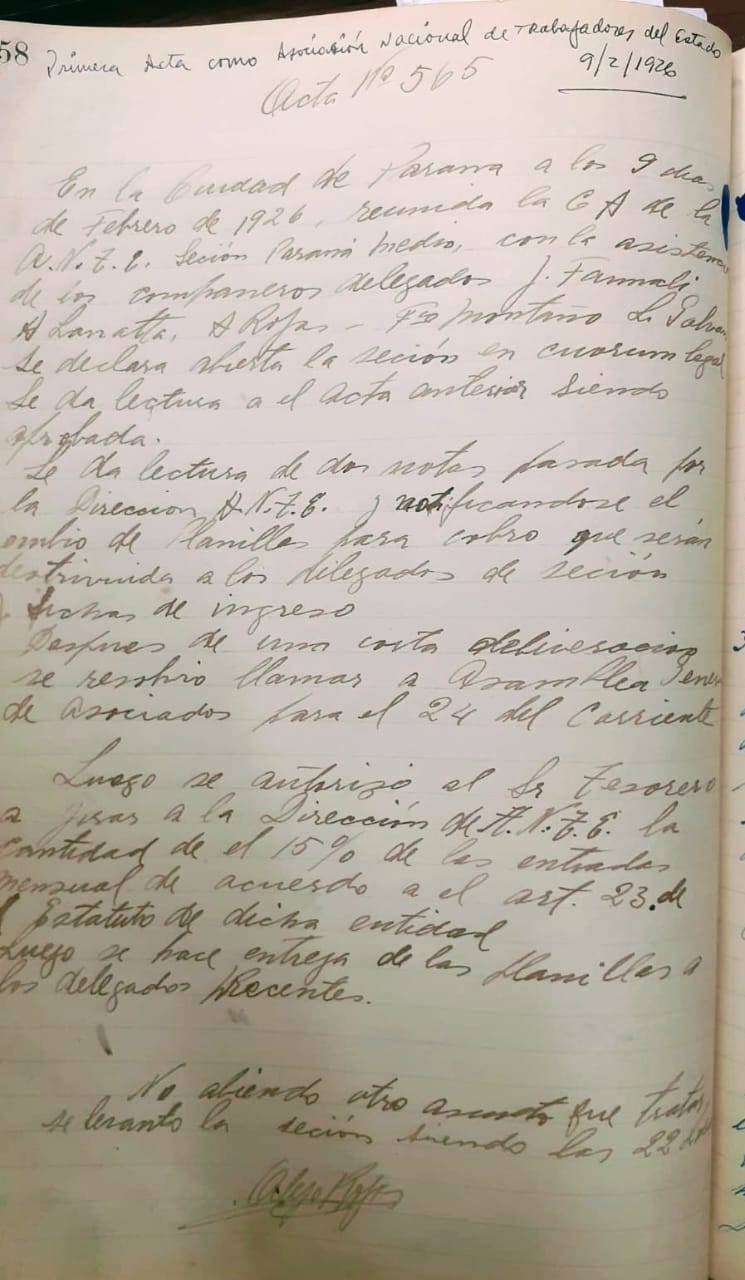 58 Primera Acta como Asociación Nacional de Trabajadores del Estado
9/2/1926
Acta Nº 565
En la Ciudad de Parana a los 9 dias
de Febrero de 1926, reunida la C A de la
A.N.T.E. Seción Paraná Medio, con la asistencia
de los compañeros delegados J. Farmali
A Lanatta, A Rojas - Fco Montaño L. Galvan
se declara abierta la seción en cuorum legal
Se da lectura a el acta anterior siendo
aprobada.
Se da lectura de dos notas pasada por
la Direccion A.N.T.E. y notificandose el
ambio de Planillas para cobro que serán
destrivuida a los delegados de seción
y fichas de ingreso
Despues de una corta deliveracion
se resolvio llamar a Asamblea Gener
de Asociados para el 24 del Corriente
Luego se autorizó al Sr Tesorero
a jirar a la Dirección de A.N.T.E. la
cantidad de el 15% de las entradas
mensual de acuerdo a el art. 23. de
l Estatuto de dicha entidad
Luego se hace entrega de las Planillas a
los delegados precentes.
No abiendo otro asunto que tratar
se levanto la seción siendo las 22
Rojas